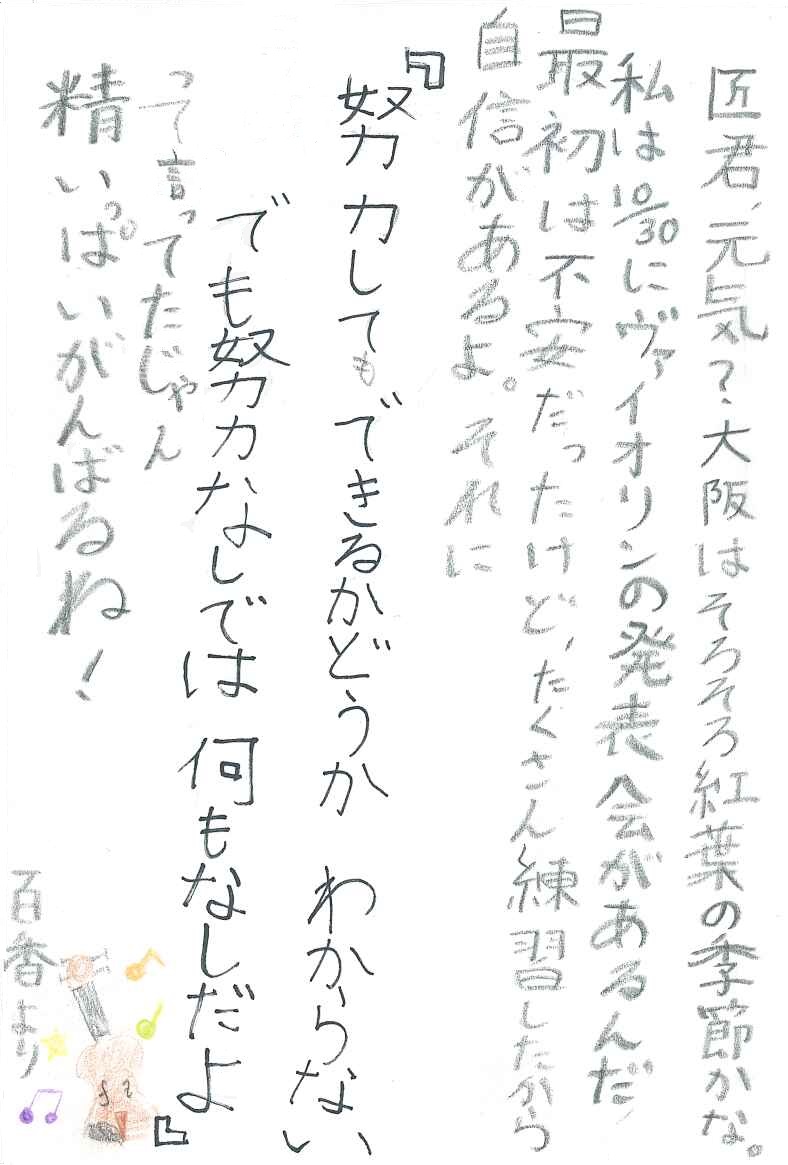 匠君、元気?大阪はそろそろ紅葉の季節かな。
私は10/30にヴァイオリンの発表会があるんだ
最初は不安だったけど、たくさん練習したから
自信があるよ。それに
『努力してもできるかどうかわからない
でも努力なしでは何もなしだよ』
って言ってたじゃん
精いっぱいがんばるね!
百香より